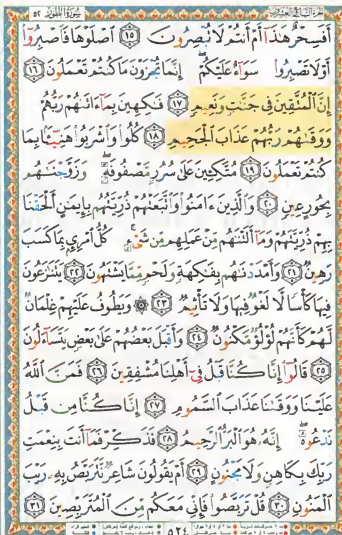 سُورَةُ الطُّورِ ٥٢
أَفَسِحْرٌ هَٰذَا أَمْ أَنتُمْ لَا تُبْصِرُونَ ١٥ اصْلَوْهَا فَاصْبِرُوا
أَوْ لَا تَصْبِرُوا سَوَاءٌ عَلَيْكُمْ إِنَّمَا تُجْزَوْنَ مَا كُنتُمْ تَعْمَلُونَ ١٦
إِنَّ الْمُتَّقِينَ فِي جَنَّاتٍ وَنَعِيمٍ ١٧ فَاكِهِينَ بِمَا ءَاتَاهُمْ رَبُّهُمْ
وَوَقَاهُمْ رَبُّهُمْ عَذَابَ الْجَحِيمِ ١٨ كُلُوا وَاشْرَبُوا هَنِيئًا بِمَا
كُنتُمْ تَعْمَلُونَ ١٩ مُتَّكِئِينَ عَلَىٰ سُرُرٍ مَّصْفُوفَةٍ وَزَوَّجْنَاهُم
بِحُورٍ عِينٍ ٢٠ وَالَّذِينَ ءَامَنُوا وَاتَّبَعَتْهُمْ ذُرِّيَّتُهُم بِإِيمَانٍ أَلْحَقْنَا
بِهِمْ ذُرِّيَّتَهُمْ وَمَا أَلَتْنَاهُم مِّنْ عَمَلِهِم مِّن شَيْءٍ كُلُّ امْرِئٍ بِمَا كَسَبَ
رَهِينٌ ٢١ وَأَمْدَدْنَاهُم بِفَاكِهَةٍ وَلَحْمٍ مِّمَّا يَشْتَهُونَ ٢٢ يَتَنَازَعُونَ
فِيهَا كَأْسًا لَّا لَغْوٌ فِيهَا وَلَا تَأْثِيمٌ ٢٣ ۞ وَيَطُوفُ عَلَيْهِمْ غِلْمَانٌ
لَّهُمْ كَأَنَّهُمْ لُؤْلُؤٌ مَّكْنُونٌ ٢٤ وَأَقْبَلَ بَعْضُهُمْ عَلَىٰ بَعْضٍ يَتَسَاءَلُونَ
٢٥ قَالُوا إِنَّا كُنَّا قَبْلُ فِي أَهْلِنَا مُشْفِقِينَ ٢٦ فَمَنَّ اللَّهُ
عَلَيْنَا وَوَقَانَا عَذَابَ السَّمُومِ ٢٧ إِنَّا كُنَّا مِن قَبْلُ
نَدْعُوهُ إِنَّهُ هُوَ الْبَرُّ الرَّحِيمُ ٢٨ فَذَكِّرْ فَمَا أَنتَ بِنِعْمَتِ
رَبِّكَ بِكَاهِنٍ وَلَا مَجْنُونٍ ٢٩ أَمْ يَقُولُونَ شَاعِرٌ نَّتَرَبَّصُ بِهِ رَيْبَ
الْمَنُونِ ٣٠ قُلْ تَرَبَّصُوا فَإِنِّي مَعَكُم مِّنَ الْمُتَرَبِّصِينَ ٣١
٥٢٤